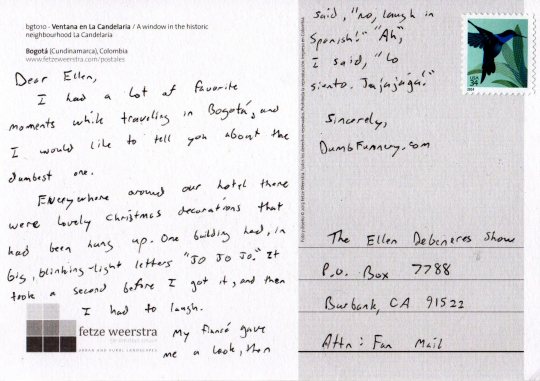 bgt010 - Ventana en La Candelaria / A window in the historic
neighbourhood La Candelaria
Bogotá (Cundinamarca), Colombia
www.fetzeweerstra.com/postales
Dear Ellen,
I had a lot of favorite
moments while traveling in Bogotá, and
I would like to tell you about the
dumbest one.
Everywhere around our hotel there
were lovely Christmas decorations that
had been hung up. One building had, in
big, blinking-light letters "JO JO JO." It
took a second before I got it, and then
I had to laugh.
My fiancé gave
me a look, then
fetze weerstra
URBAN AND RURAL LANDSCAPES
said, "no, laugh in
Spanish!" "Ah,"
I said, "Lo
siento. Jajajaja!"
Sincerely,
DumbFunnery.com
USA
34
The Ellen Degeneres Show
P.O. Box 7788
Burbank, CA 91522
Attn: Fan Mail